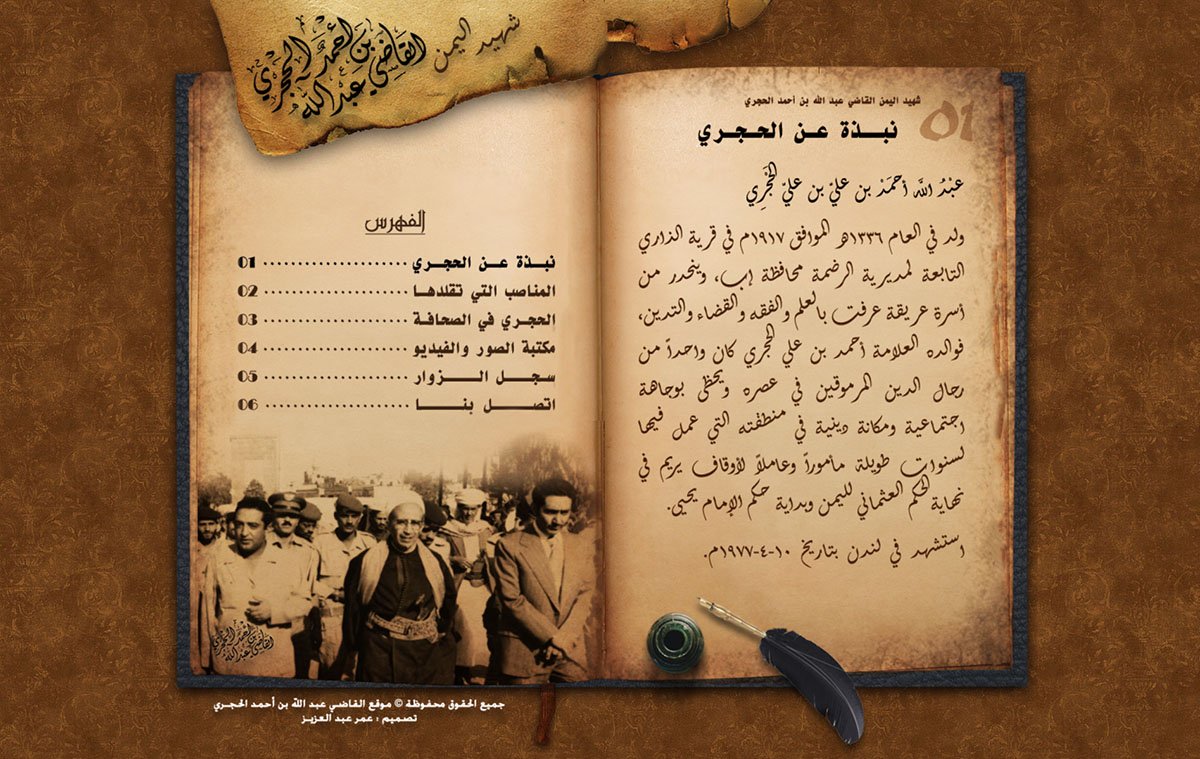 شهيد اليمن
القاضي عبد الله بن أحمد الحجري
شهيد اليمن القاضي عبد الله بن أحمد الحجري
01
نبذة عن الحجري
عَبْدُ اللَّه أحمَدْ بن عليّ بن عليّ الحَجْرِي
ولد في العام ١٣٣٦هـ الموافق ١٩١٧م في قرية الذاري
التابعة لمديرية الرضمة محافظة إب، وينحدر من
أسرة عريقة عرفت بالعلم والفقه والقضاء والتدين،
فوالده العلامة أحمد بن علي الحجري كان واحداً من
رجال الدين المرموقين في عصره ويحظى بوجاهة
اجتماعية ومكانة دينية في منطقته التي عمل فيها
لسنوات طويلة مأموراً وعاملاً لأوقاف يريم في
نهاية الحكم العثماني لليمن وبداية حكم الإمام يحيى.
استشهد في لندن بتاريخ ١٠-٤-١٩٧٧م.
الفهرس
نبذة عن الحجري .................... 01
المناصب التي تقلدها .................... 02
الحجري في الصحافة .................... 03
مكتبة الصور والفيديو .................... 04
سجل الزوار .................... 05
اتصل بنا .................... 06
القاضي عبد الله بن أحمد الحجري
جميع الحقوق محفوظة © موقع القاضي عبد الله بن أحمد الحجري
تصميم : عمر عبد العزيز